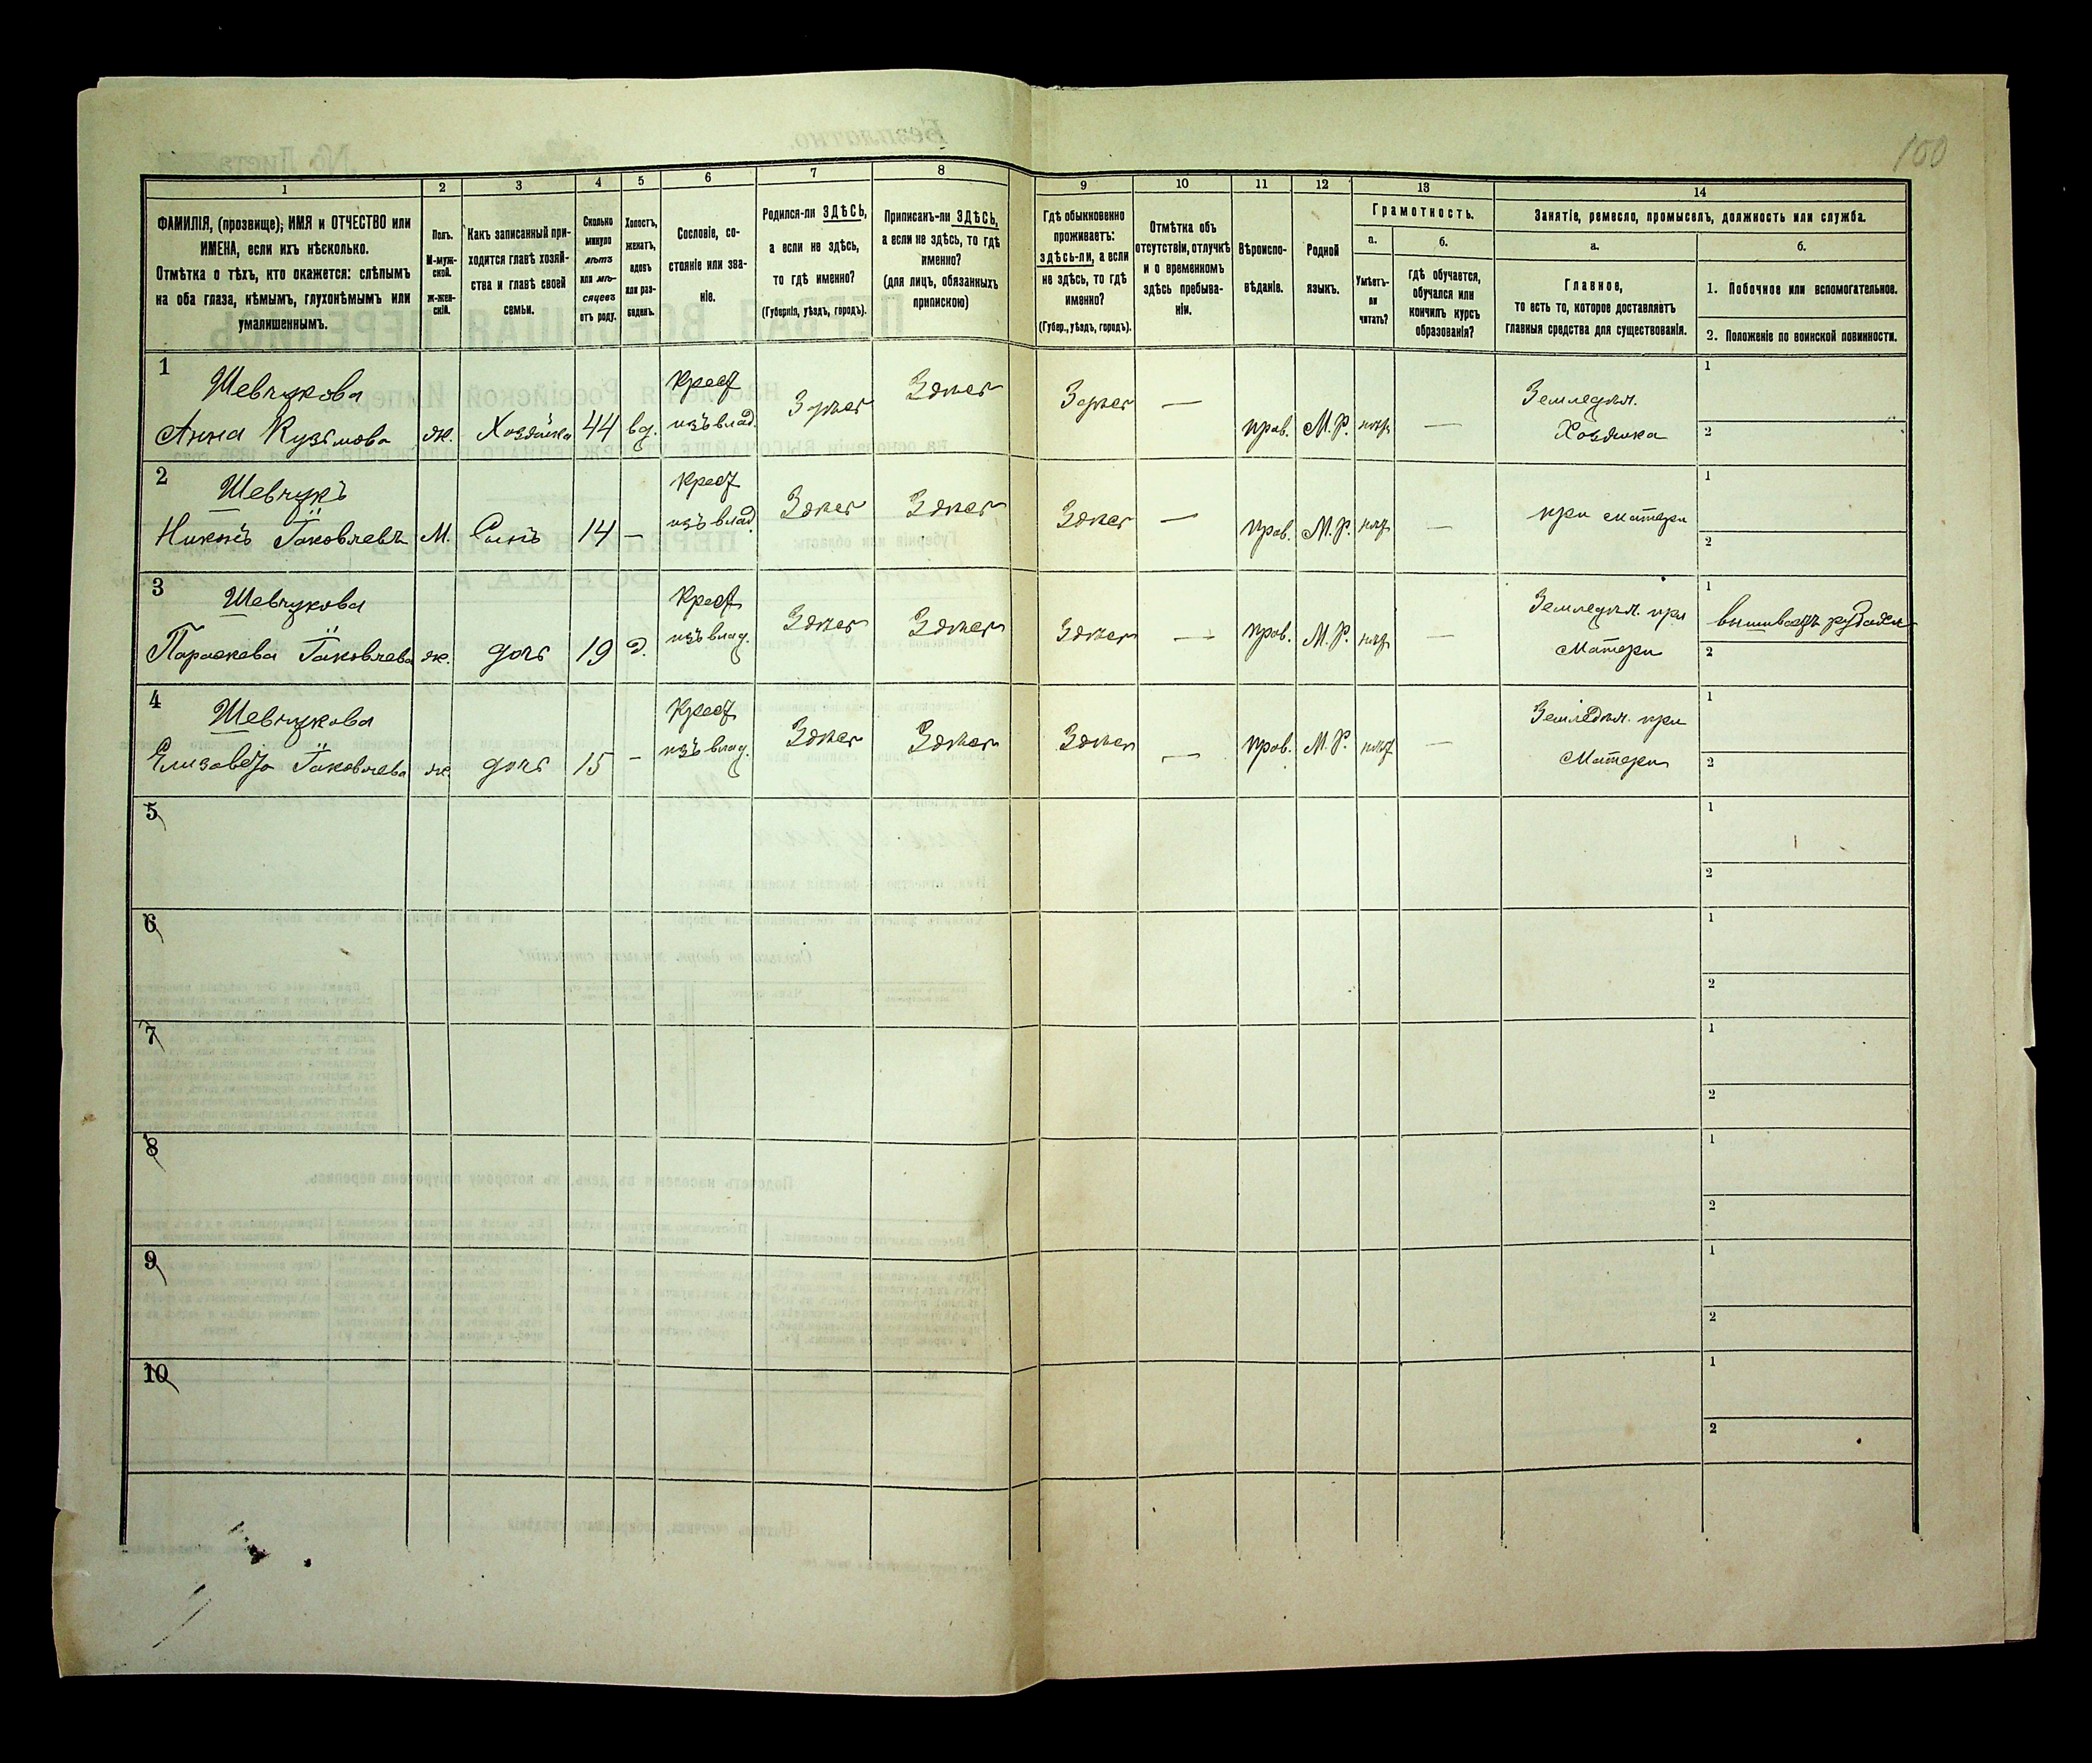 100
1 2 3 4 5 6 7 8 9 10 11 12 13 14
ФАМИЛІЯ, (прозвище); ИМЯ и ОТЧЕСТВО или
ИМЕНА, если ихъ нѣсколько.
Отмѣтка о тѣхъ, кто окажется: слѣпымъ
на оба глаза, нѣмымъ, глухонѣмымъ или
умалишеннымъ.
Полъ.
М-муж-
ской.
ж-жен-
скій.
Какъ записанный при-
ходится главѣ хозяй-
ства и главѣ своей
семьи.
Сколько
минуло
лѣтъ
или мѣ-
сяцевъ
отъ роду.
Холостъ,
женатъ,
вдовъ
или раз-
веденъ.
Сословіе, со-
стояніе или зва-
ніе.
Родился-ли ЗДѢСЬ,
а если не здѣсь,
то гдѣ именно?
(Губернія, уѣздъ, городъ).
Приписанъ-ли ЗДѢСЬ,
а если не здѣсь, то гдѣ
именно?
(для лицъ, обязанныхъ
припискою)
Гдѣ обыкновенно
проживаетъ:
здѣсь-ли, а если
не здѣсь, то гдѣ
именно?
(Губер., уѣздъ, городъ).
Отмѣтка объ
отсутствіи, отлучкѣ
и о временномъ
здѣсь пребыва-
ніи.
Вѣроиспо-
вѣданіе.
Родной
языкъ.
Грамотность.
а.
Умѣетъ-
ли
читать?
б.
гдѣ обучается,
обучался или
кончилъ курсъ
образованія?
Занятіе, ремесло, промыселъ, должность или служба.
а.
Главное,
то есть то, которое доставляетъ
главныя средства для существованія.
б.
1. Побочное или вспомогательное.
2. Положеніе по воинской повинности.
1
Шевчукова
Анна Кузьмова ж. Хозяйка 44 вд.
Крест
изъ влад.
Здѣсь Здѣсь Здѣсь — прав. М.Р. нѣтъ —
Земледѣл.
Хозяйка
1
2
2
Шевчукъ
Никонъ Яковлевъ М. Сынъ 14 —
Крест
изъ влад
Здѣсь Здѣсь Здѣсь — прав. М.Р. нѣтъ —
при матери
1
2
3
Шевчукова
Параскева Яковлева ж. дочь 19 д.
Крест
изъ влад.
Здѣсь Здѣсь Здѣсь — прав. М.Р. нѣтъ —
Земледѣл. при
Матери
1
вышиваетъ
2
4
Шевчукова
Елизавета Яковлева ж. дочь 15 —
Крест
изъ влад.
Здѣсь Здѣсь Здѣсь — прав. М.Р. нѣтъ —
Земледѣл. при
Матери
1
2
5
1
2
6
1
2
7
1
2
8
1
2
9
1
2
10
1
2